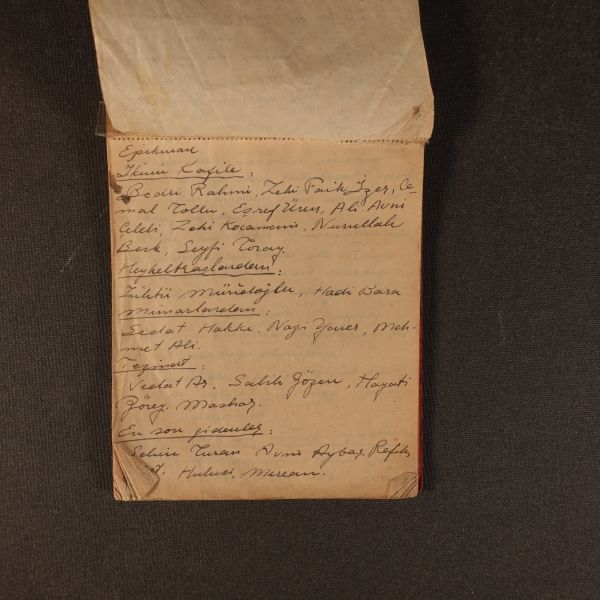 Epikman
İkinci Kafile :
Bedri Rahmi, Zeki Faik İzer, Ce-
mal Tollu, Eşref Üren, Ali Avni
Çelebi, Zeki Kocamemi, Nurullah
Berk, Seyfi Toray.
Heykeltraşlardan :
Zühtü Müridoğlu, Hadi Bara
Mimarlardan :
Sedat Hakkı, Nazi Yaver, Meh-
met Ali.
Tezinat :
Vedat Ar. Salih Gözen, Hayati
Görey. Mazhar.
En son gidenler :
Selim Turan Avni Aybaş, Refik
Hulusi, Mercan.